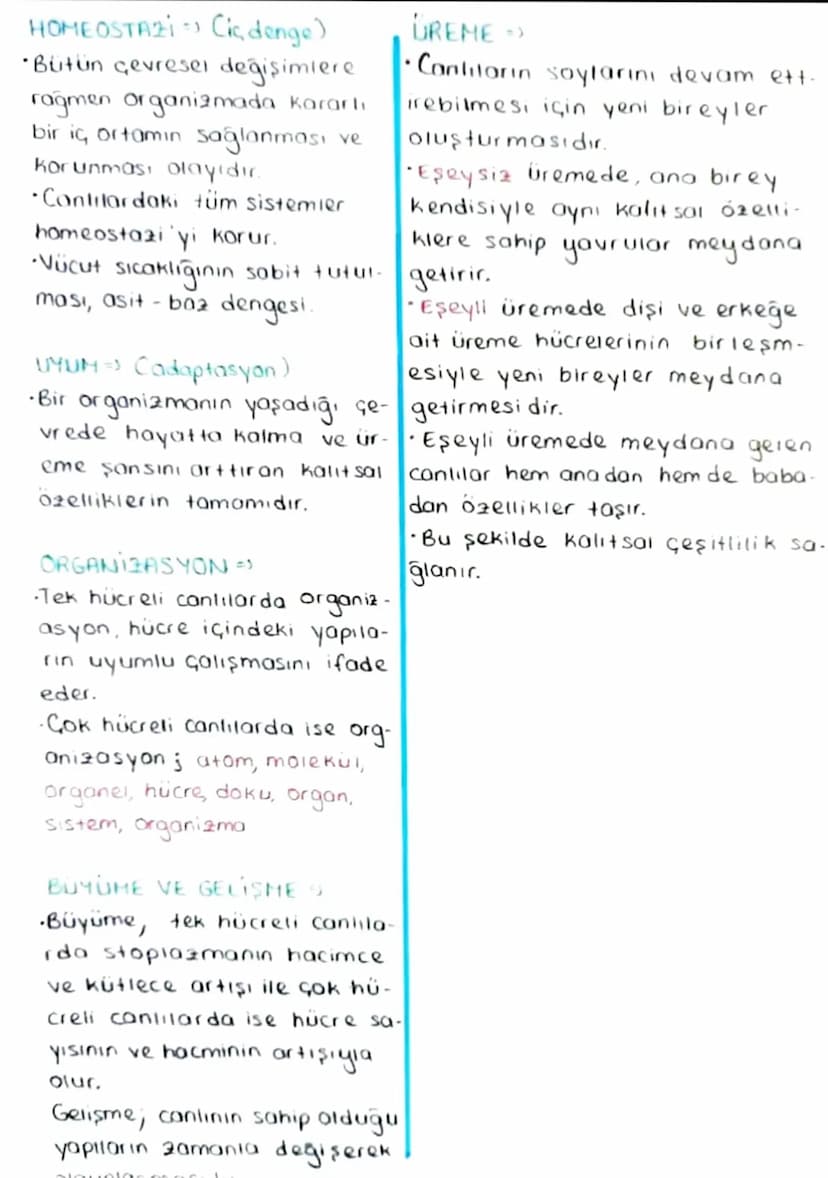 HOMEOSTAZİ => (iç denge)
• Bütün çevresel değişimlere
rağmen organizmada kararlı
bir iç ortamın sağlanması ve
korunması olayıdır.
• Canlılardaki tüm sistemler
homeostazi'yi korur.
• Vücut sıcaklığının sabit tutul-
ması, asit - baz dengesi.
UYUM => (adaptasyon)
• Bir organizmanın yaşadığı çe-
vrede hayatta kalma ve ür-
eme şansını arttıran kalıtsal
özelliklerin tamamıdır.
ORGANİZASYON =>
• Tek hücreli canlılarda organiz-
asyon, hücre içindeki yapıla-
rın uyumlu çalışmasını ifade
eder.
• Çok hücreli canlılarda ise org-
anizasyon ; atom, molekül,
organel, hücre, doku, organ,
sistem, organizma
BÜYÜME VE GELİŞME =>
• Büyüme, tek hücreli canlıla-
rda stoplazmanın hacimce
ve kütlece artışı ile çok hü-
creli canlılarda ise hücre sa-
yısının ve hacminin artışıyla
olur.
Gelişme; canlının sahip olduğu
yapıların zamanla değişerek
ÜREME =>
• Canlıların soylarını devam ett-
irebilmesi için yeni bireyler
oluşturmasıdır.
• Eşeysiz üremede, ana birey
kendisiyle aynı kalıtsal özelli-
klere sahip yavrular meydana
getirir.
• Eşeyli üremede dişi ve erkeğe
ait üreme hücrelerinin birleşm-
esiyle yeni bireyler meydana
getirmesidir.
• Eşeyli üremede meydana gelen
canlılar hem anadan hem de baba-
dan özellikler taşır.
• Bu şekilde kalıtsal çeşitlilik sa-
ğlanır.